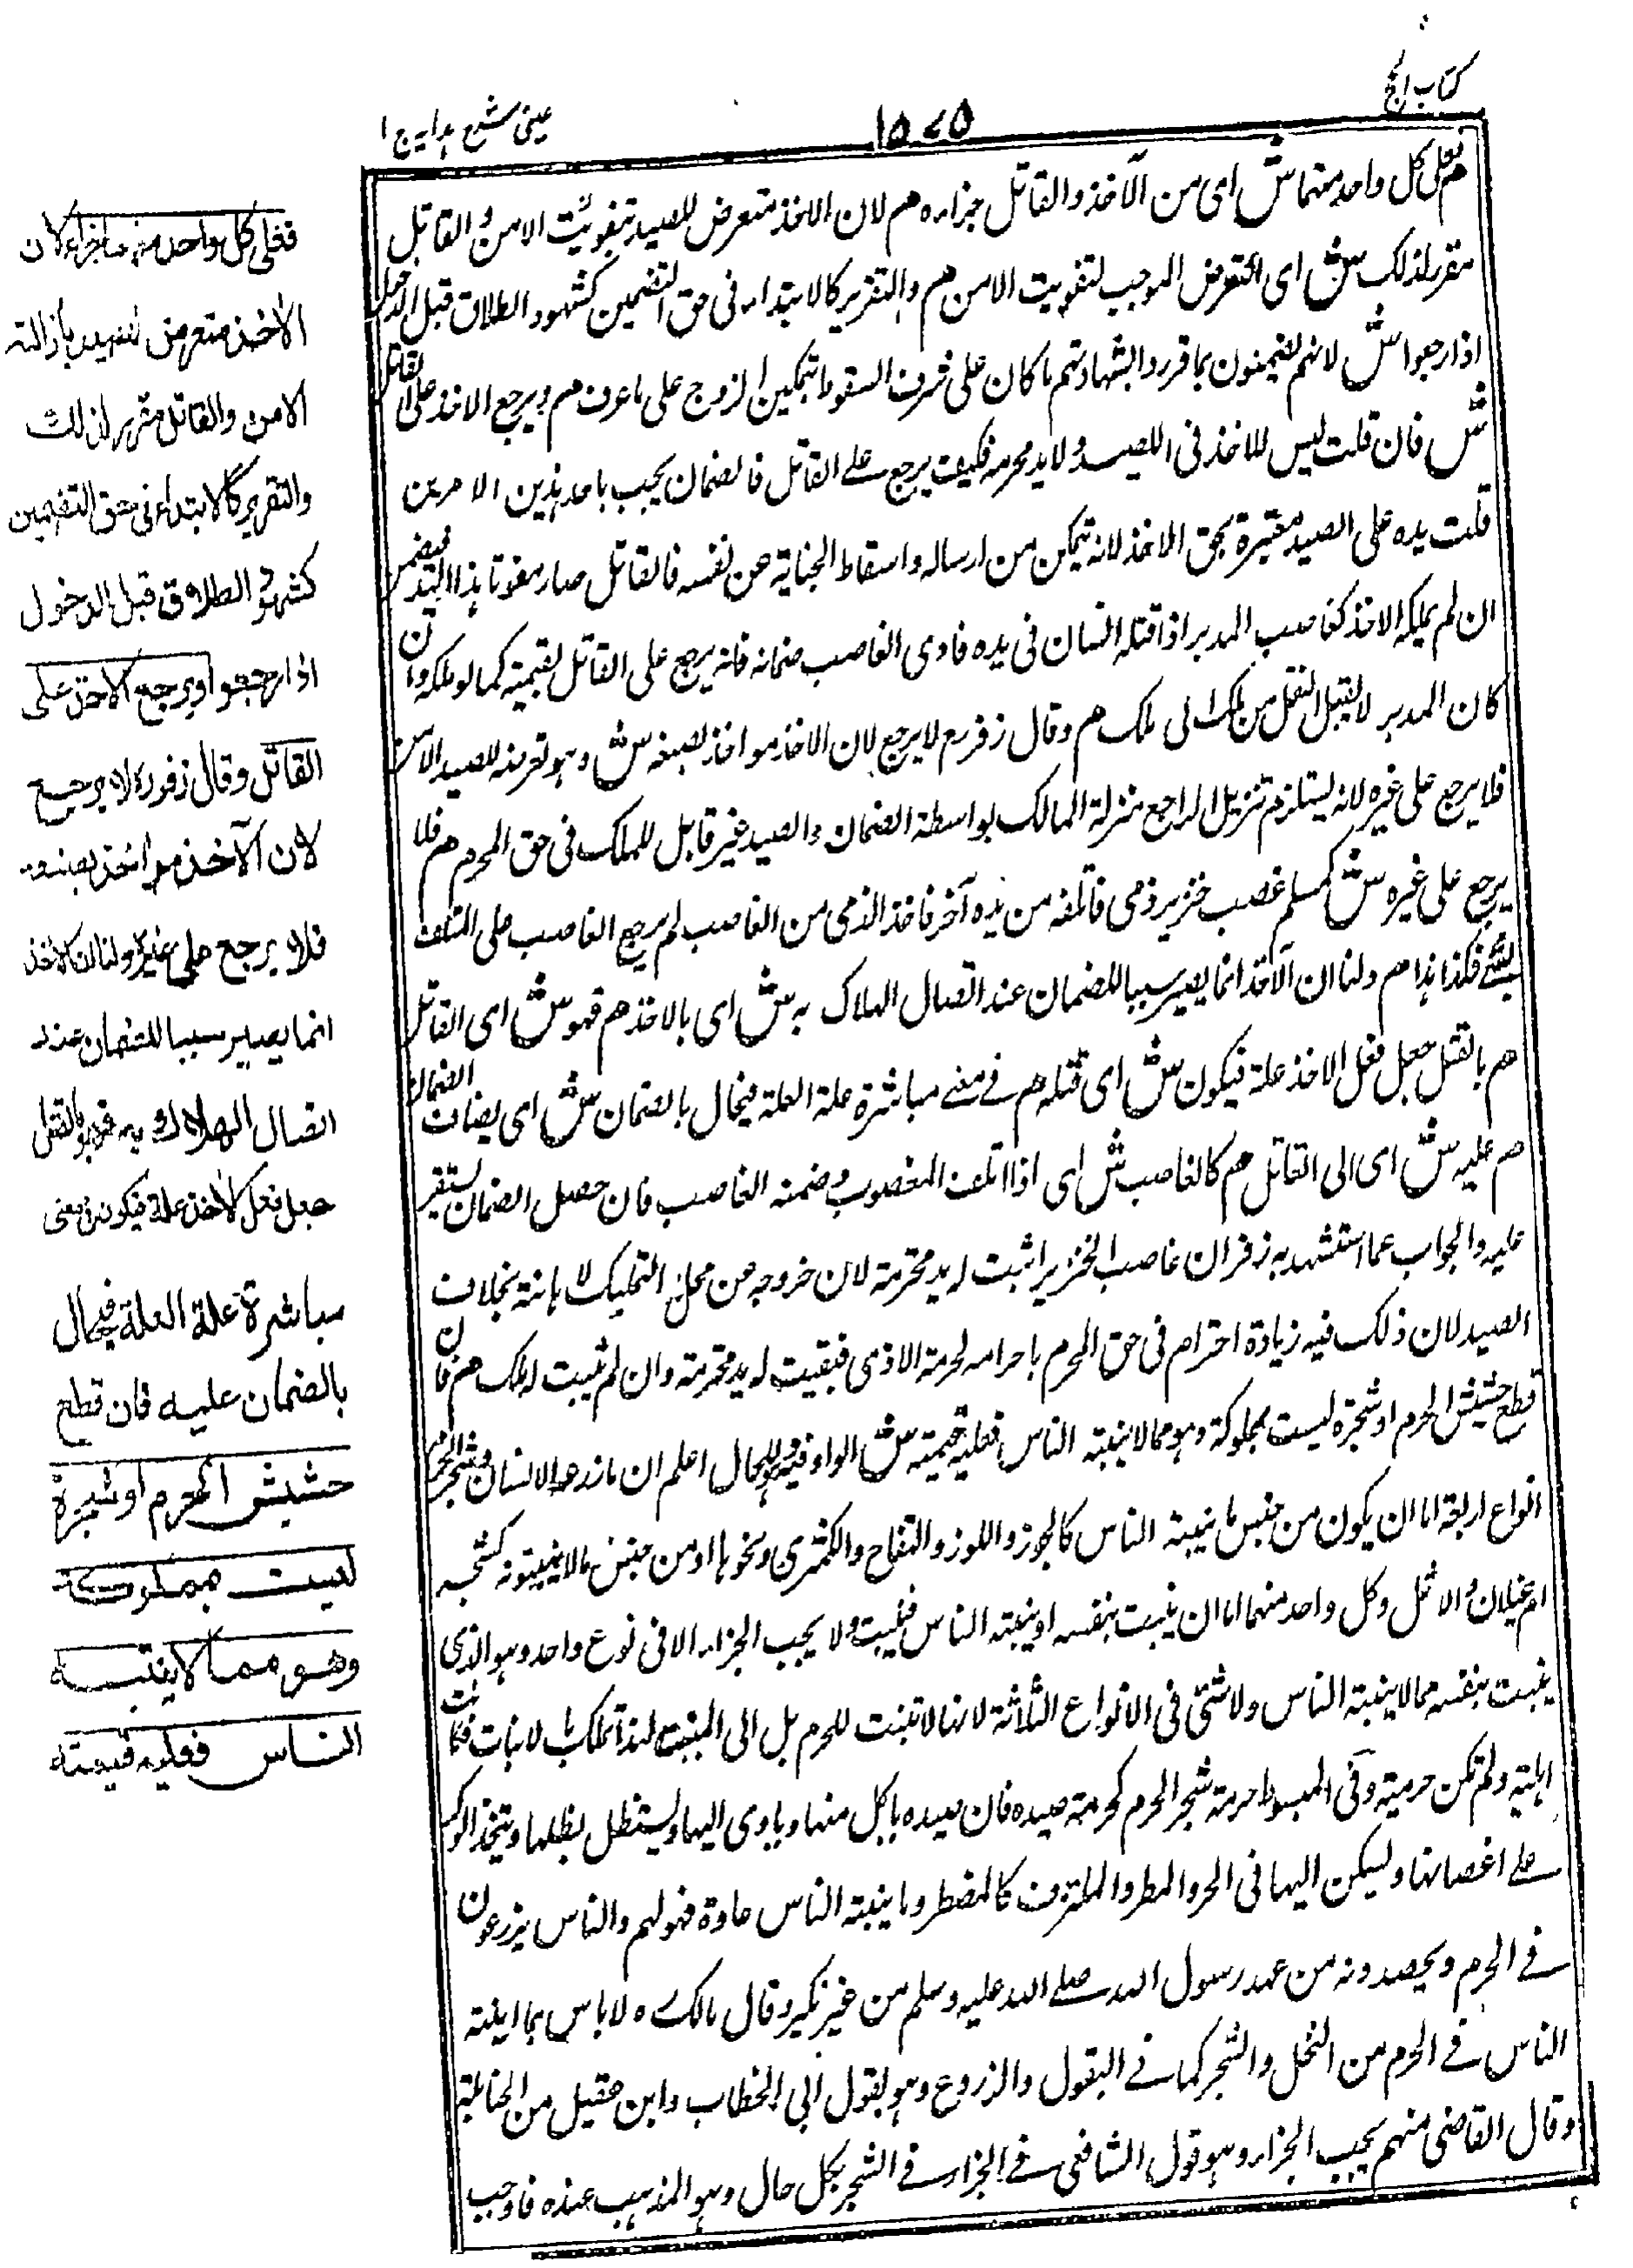 كتاب الحج
١٥٧٥
عينى شرح هدايه ج ١
هم فعلى كل واحد منهما ش اى من الآخذ والقاتل جزاء هم لان الاخذ متعرض للصيد بتفويت الامن والقاتل
مقرر لذلك ش اى التعرض الموجب لتفويت الامن هم والتقرير كالابتداء فى حق التضمين كشهود الطلاق قبل الدخول
اذا رجعوا ش لانهم يضمنون بما قرروا بشهادتهم ما كان على شرف السقوط بتمكين الزوج على ما عرف هم ويرجع الاخذ على القاتل
ش فان قلت ليس للاخذ فى الصيد ولا يد محرمه فكيف يرجع على القاتل فالضمان يجب باحد هذين الامرين
قلت يده على الصيد معتبرة بحق الاخذ لانه يتمكن من ارساله واسقاط الجناية عن نفسه فالقاتل صار مفوتا هذا اليد فيضمن
ان لم يملكه الاخذ كغاصب المدبر اذا قتله انسان فى يده فادى الغاصب ضمانه فانه يرجع على القاتل بقيمته كما لو ملكه وان
كان المدبر لا يقبل النقل من ملك الى ملك هم وقال زفر رح لا يرجع لان الاخذ مواخذ بصنعه ش وهو تعرضه للصيد الامن
فلا يرجع على غيره لانه يستلزم تنزيل الراجع منزلة المالك بواسطة الضمان والصيد غير قابل للملك فى حق المحرم هم فلا
يرجع على غيره ش كمسلم غصب خنزير ذمى فاتلفه من يده آخر فاخذ الذمى من الغاصب لم يرجع الغاصب على المتلف
بشئ فكذا هذا هم ولنا ان الآخذ انما يصير سببا للضمان عند اتصال الهلاك به ش اى بالاخذ هم فهو ش اى القاتل
هم بالقتل جعل فعل الاخذ علة فيكون ش اى قتله هم فى معنى مباشرة علة العلة فيحال بالضمان ش اى يضاف الضمان
هم عليه ش اى الى القاتل هم كالغاصب ش اى اذا اتلف المغصوب وضمنه الغاصب فان حصل الضمان يستقر
عليه والجواب عما استشهد به زفر ان غاصب الخنزير اثبت له يد محترمة لان خروجه عن محل التمليك لاهانته بخلاف
الصيد لان ذلك فيه زيادة احترام فى حق المحرم باحرامه لحرمة الاذى فبقيت له يد محترمة وان لم يثبت له ملك هم فان
قطع حشيش الحرم او شجرة ليست بمملوكة وهو مما لا ينبته الناس فعليه قيمته ش الواو فيه وهو للحال اعلم ان ما زرعه الانسان وشجر الحرم
انواع اربعة اما ان يكون من جنس ما ينبته الناس كالجوز واللوز والتفاح والكمثرى ونحوها او من جنس ما لا ينبتونه كشجر
ام غيلان والاثل وكل واحد منهما اما ان ينبت بنفسه او ينبته الناس فينبت ولا يجب الجزاء الا فى نوع واحد وهو الذى
ينبت بنفسه مما لا ينبته الناس ولا شئ فى الانواع الثلاثة لانها لا تنبت للحرم بل الى المنبت لهذا تملك بالانبات فكانت
اهلية ولم تكن حرمية وفى المبسوط حرمة شجر الحرم كحرمة صيده فان صيده ياكل منها وياوى اليها ويستظل بظلها ويتخذ الوكر
على اغصانها ويسكن اليها فى الحر والمطر وما ينبته الناس عادة فهو لهم والناس يزرعون
فى الحرم ويحصدونه من عهد رسول الله صلى الله عليه وسلم من غير نكير وقال مالك ره لا باس بما ينبته
الناس فى الحرم من النخل والشجر كما فى البقول والزروع وهو يقول ابى الخطاب وابن عقيل من الحنابلة
وقال القاضى منهم يجب الجزاء وهو قول الشافعى فى الجزاء فى الشجر بكل حال وهو المذهب عنده فاوجب
فعلى كل واحد منهما جزاء لان
الاخذ متعرض للصيد بازالته
الامن والقاتل مقرر لذلك
والتقرير كالابتداء فى حق التضمين
كشهود الطلاق قبل الدخول
اذا رجعوا ويرجع الاخذ على
القاتل وقال زفر ره لا يرجع
لان الآخذ مواخذ بصنعه
فلا يرجع على غيره ولنا ان الاخذ
انما يصير سببا للضمان عند
اتصال الهلاك به فهو بالقتل
جعل فعل الاخذ علة فيكون فى معنى
مباشرة علة العلة فيحال
بالضمان عليه فان قطع
حشيش الحرم او شجرة
ليست بمملوكة
وهو مما لا ينبته
الناس فعليه قيمته